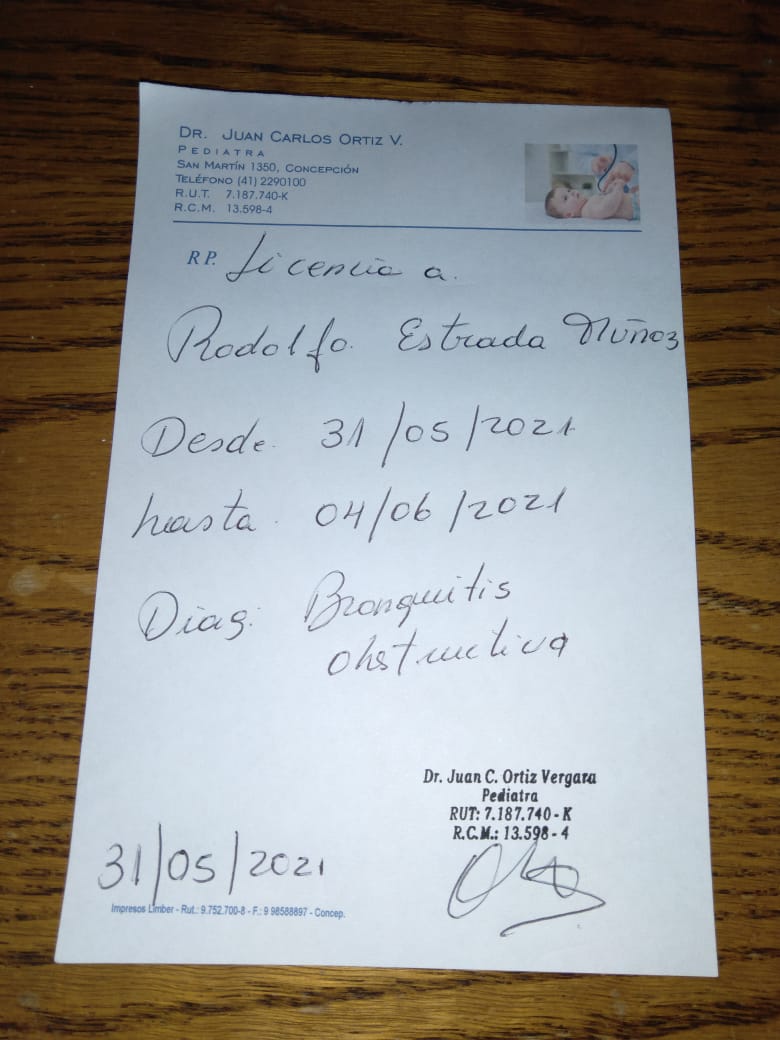 DR. JUAN CARLOS ORTIZ V.
PEDIATRA
SAN MARTÍN 1350, CONCEPCIÓN
TELÉFONO (41) 2290100
R.U.T. 7.187.740-K
R.C.M. 13.598-4
RP. Licencia a.
Rodolfo. Estrada Muñoz
Desde. 31/05/2021
hasta. 04/06/2021
Diag: Bronquitis
obstructiva
Dr. Juan C. Ortiz Vergara
Pediatra
RUT: 7.187.740-K
R.C.M.: 13.598-4
31/05/2021
Impresos Limber - Rut.: 9.752.700-8 - F.: 9 98588897 - Concep.